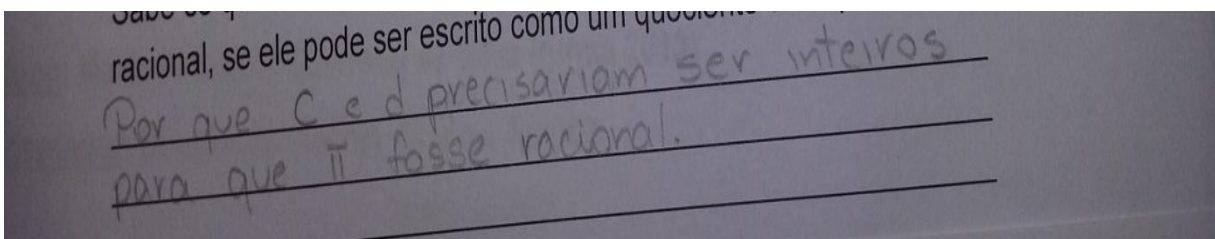 racional, se ele pode ser escrito como um
Por que C e d precisariam ser inteiros
para que π fosse racional.